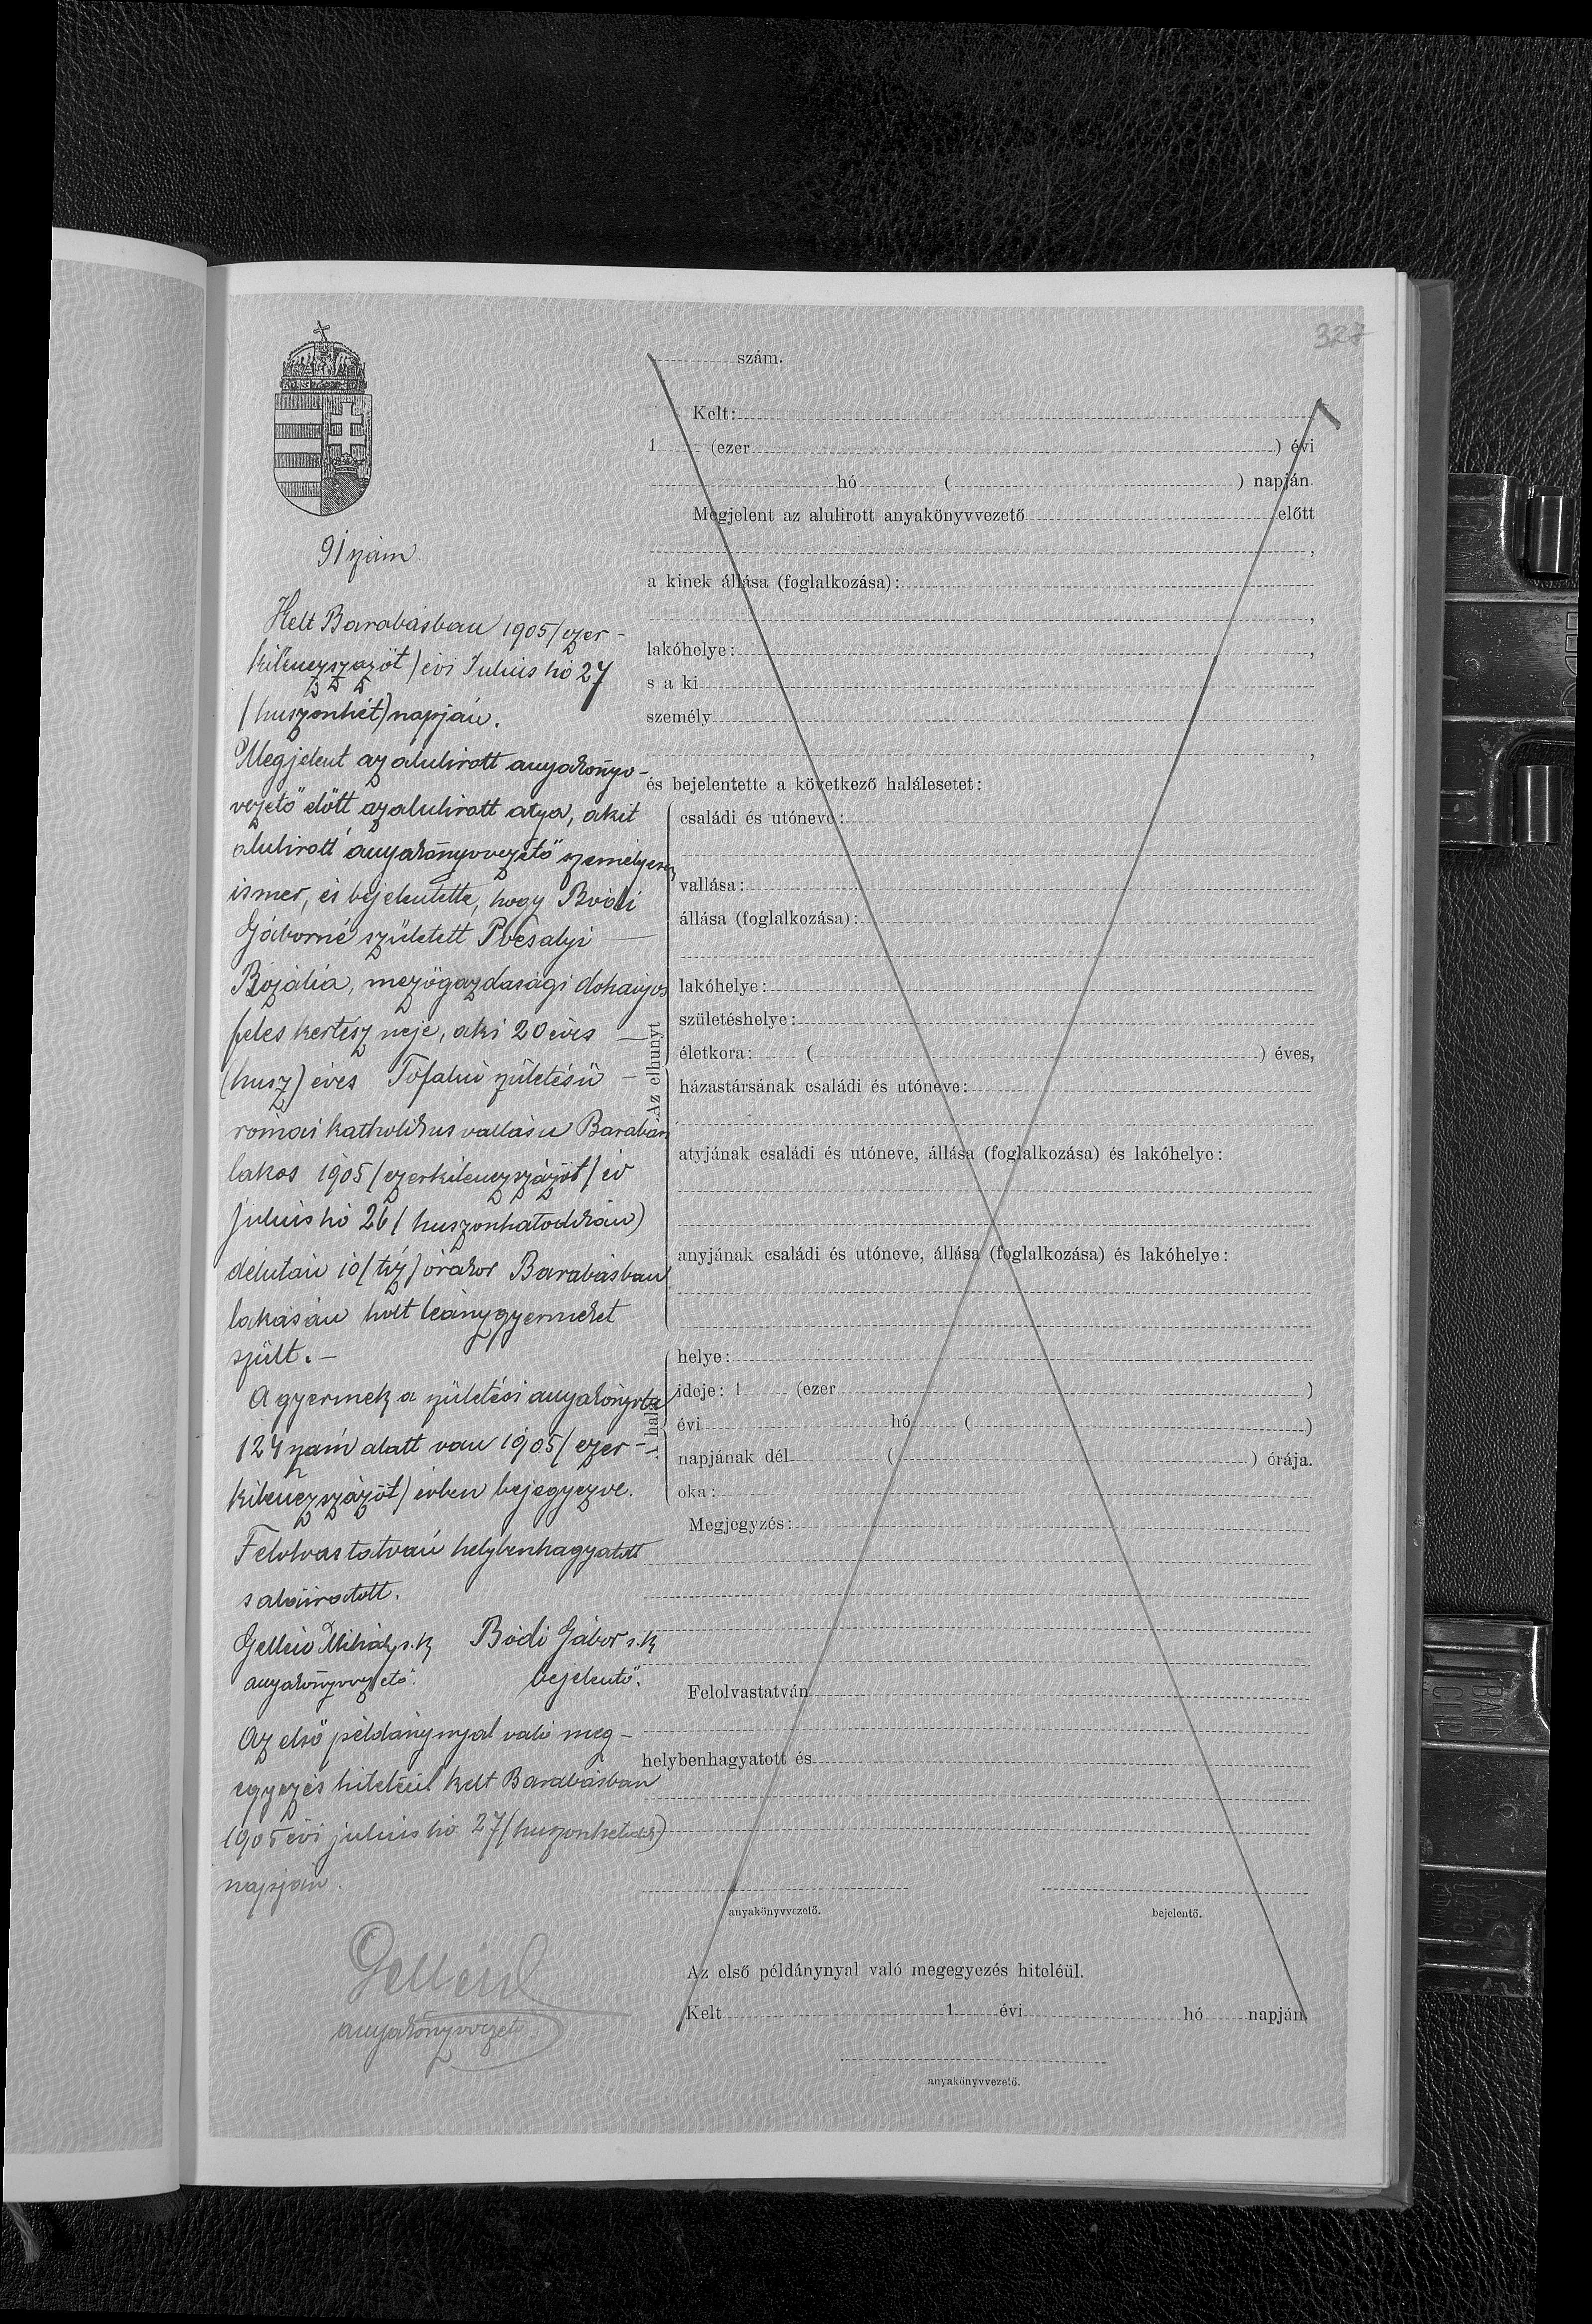 327
91 szám
Kelt Barabásban 1905 / ezer-
kilenczszázöt) évi Julius hó 27
(huszonhét) napján.
Megjelent az alulirott anyakönyv-
vezető előtt az alulirott atya, akit
alulirott anyakönyvvezető személyesen
ismer, és bejelentette, hogy Bódi
Gáborné született Pócsalyi
Rozália, mezőgazdasági dohányos
feles kertész neje, aki 20 éves
(husz) éves Tófalui születésü
római katholikus vallásu Barabási
lakos 1905 (ezerkilenczszázöt) év
julius hó 26 (huszonhatodikán)
délután 10 (tiz) órakor Barabásban
lakásán holt leánygyermeket
szült. –
A gyermek a születési anyakönyvbe
124 szám alatt van 1905 / ezer-
kilenczszázöt) évben bejegyezve.
Felolvastatván helybenhagyatott
s aláiratott.
Gellén Mihály s.k. Bódi Gábor s.k
anyakönyvvezető. bejelentő.
Az első példánynyal való meg-
egyezés hiteléül kelt Barabásban
1905 évi julius hó 27 (huszonhetedik)
napján.
Gellén
anyakönyvvezető.
szám.
Kelt:
1 (ezer ) évi
hó ( ) napján.
Megjelent az alulirott anyakönyvvezető előtt
,
a kinek állása (foglalkozása):
,
lakóhelye: ,
s a ki
személy
,
és bejelentette a következő halálesetet:
Az elhunyt
családi és utóneve:
vallása:
állása (foglalkozása):
lakóhelye:
születéshelye:
életkora: ( ) éves,
házastársának családi és utóneve:
atyjának családi és utóneve, állása (foglalkozása) és lakóhelye:
anyjának családi és utóneve, állása (foglalkozása) és lakóhelye:
A halál
helye:
ideje: 1 (ezer )
évi hó ( )
napjának dél ( ) órája.
oka:
Megjegyzés:
Felolvastatván
helybenhagyatott és
anyakönyvvezető. bejelentő.
Az első példánynyal való megegyezés hiteléül.
Kelt 1 évi hó napján.
anyakönyvvezető.